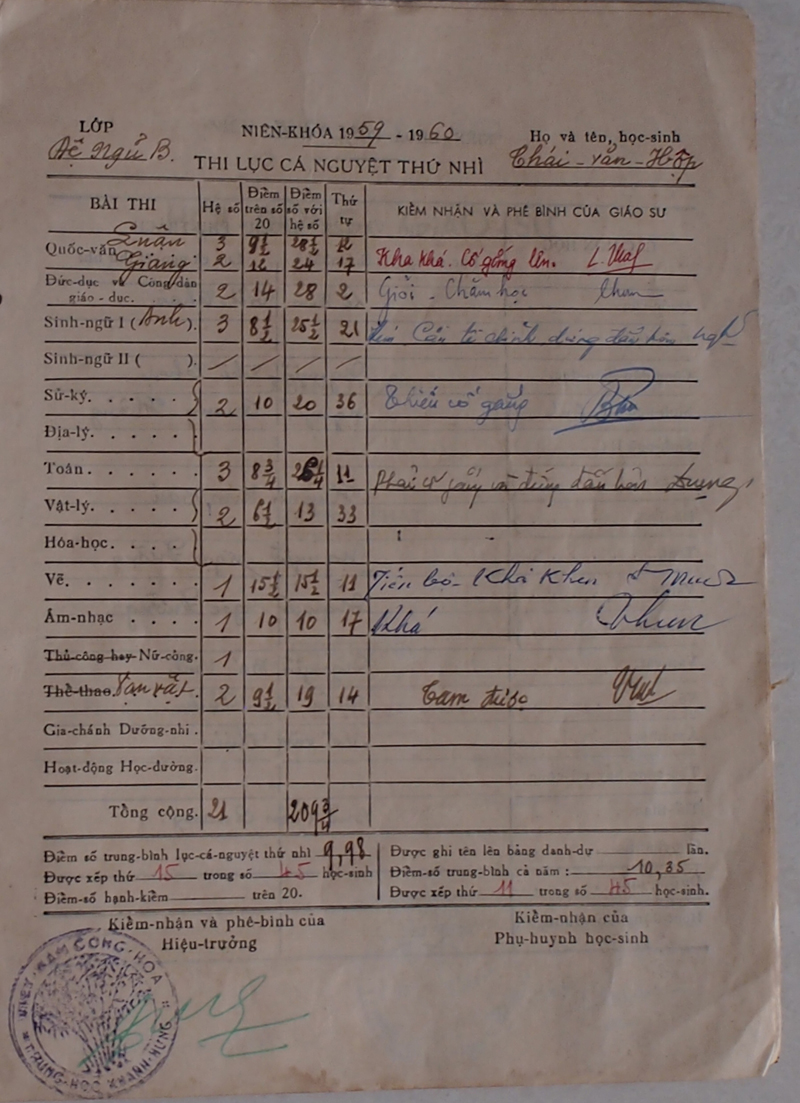 LỚP
Đệ Ngũ B.
NIÊN-KHÓA 1959 - 1960
Họ và tên, học-sinh
Thái - văn - Hợp
THI LỤC CÁ NGUYỆT THỨ NHÌ
BÀI THI Hệ số Điểm trên số 20 Điểm số với hệ số Thứ tự KIỂM NHẬN VÀ PHÊ BÌNH CỦA GIÁO SƯ
Quốc-văn Luận 3 9½ 28½ 12 Kha khá. Cố gắng lên.
Giảng 2 12 24 17
Đức-dục và Công-dân giáo-dục. 2 14 28 2 Giỏi - Chăm học
Sinh-ngữ I (Anh). 3 8½ 25½ 21
Sinh-ngữ II ( ). / / / /
Sử-ký. . . . . 2 10 20 36 Thiếu cố gắng
Địa-lý. . . . .
Toán. . . . . . 3 8¾ 26¼ 11
Vật-lý. . . . . 2 6½ 13 33
Hóa-học. . . .
Vẽ. . . . . . . 1 15½ 15½ 11 Tiến bộ - Khá Khen
Âm-nhạc . . . . 1 10 10 17 Khá
Thủ-công hay Nữ-công. 1
Thể-thao Vạn vật. 2 9½ 19 14 Tạm được
Gia-chánh Dưỡng-nhi .
Hoạt-động Học-đường.
Tổng cộng. 21 209¾
Điểm số trung-bình lục-cá-nguyệt thứ nhì 9,98
Được xếp thứ 15 trong số 45 học-sinh
Điểm-số hạnh-kiểm trên 20.
Được ghi tên lên bảng danh-dự lần.
Điểm-số trung-bình cả năm : 10,35
Được xếp thứ 11 trong số 45 học-sinh.
Kiểm-nhận và phê-bình của
Hiệu-trưởng
Kiểm-nhận của
Phụ-huynh học-sinh
VIỆT-NAM CỘNG-HÒA
TRUNG-HỌC KHÁNH-HƯNG